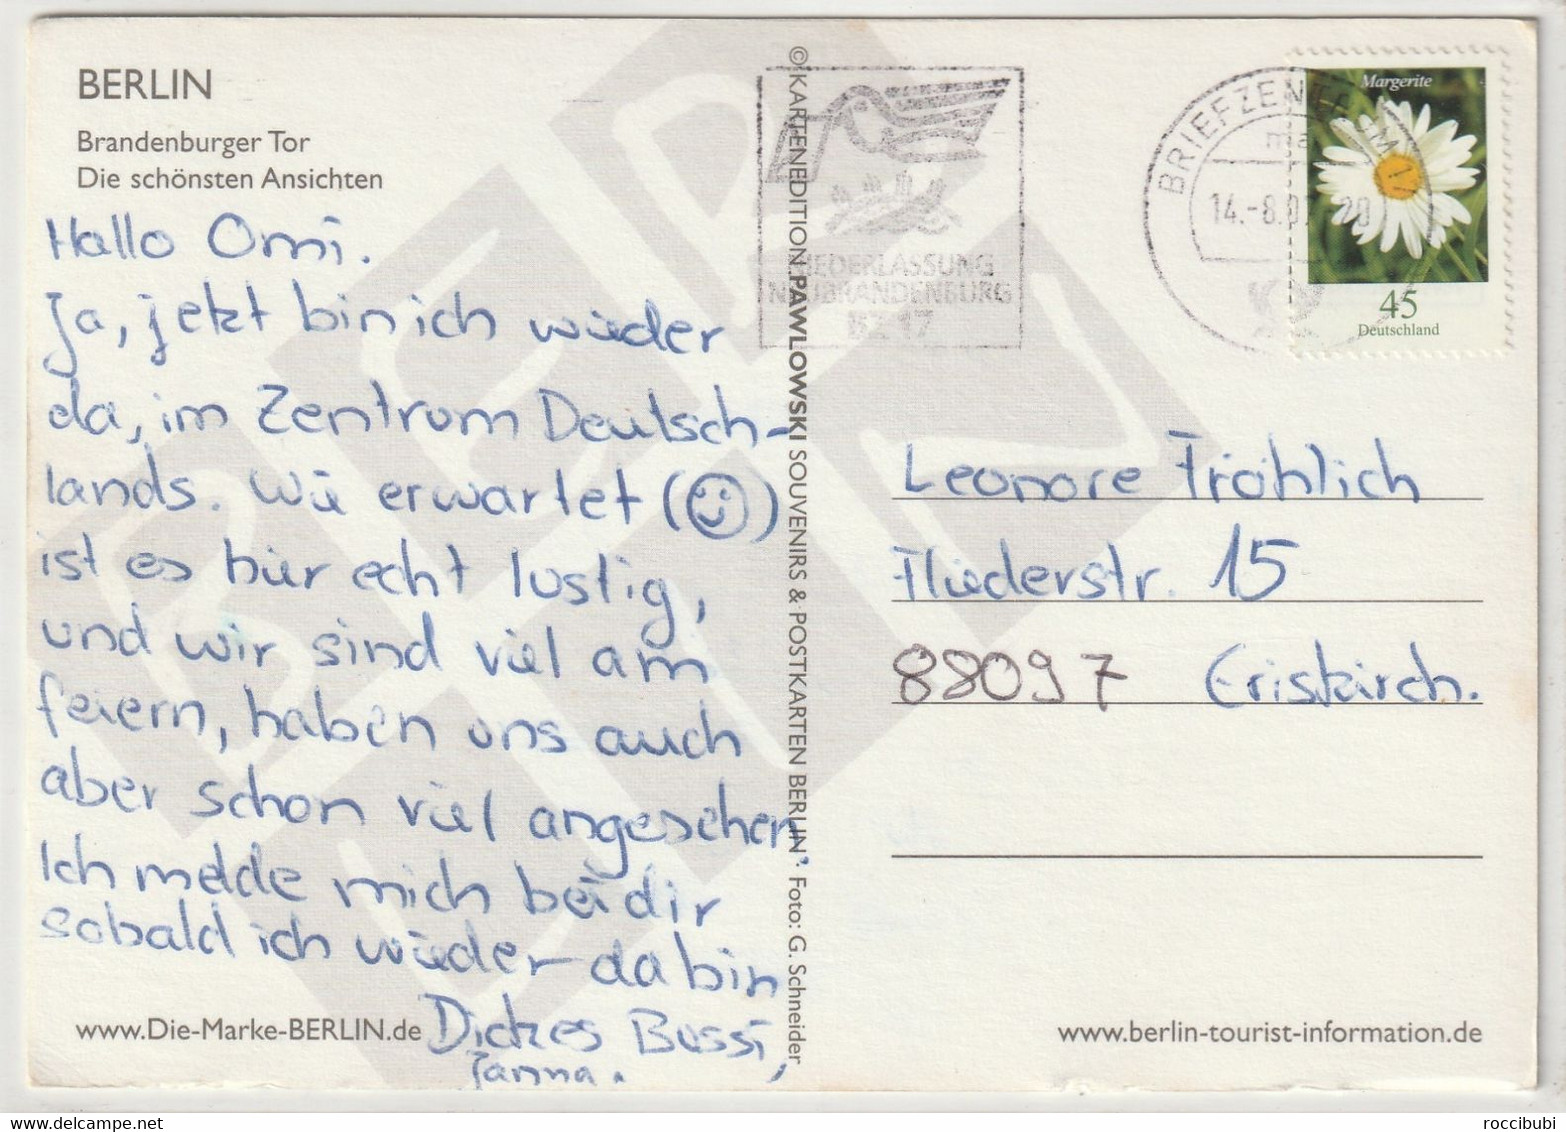 BERLIN
Brandenburger Tor
Die schönsten Ansichten
Hallo Omi.
Ja, jetzt bin ich wieder
da, im Zentrum Deutsch-
lands. Wie erwartet (☺)
ist es hier echt lustig,
und wir sind viel am
feiern, haben uns auch
aber schon viel angesehen.
Ich melde mich bei dir
sobald ich wieder da bin
Dickes Bussi,
Janna.
www.Die-Marke-BERLIN.de
© KARTENEDITION PAWLOWSKI SOUVENIRS & POSTKARTEN BERLIN • Foto: G. Schneider
NIEDERLASSUNG
NEUBRANDENBURG
BZ 17
BRIEFZENTRUM 17
14.-8.07 20
Margerite
45
Deutschland
Leonore Fröhlich
Fliederstr. 15
88097 Eriskirch.
www.berlin-tourist-information.de
roccibubi